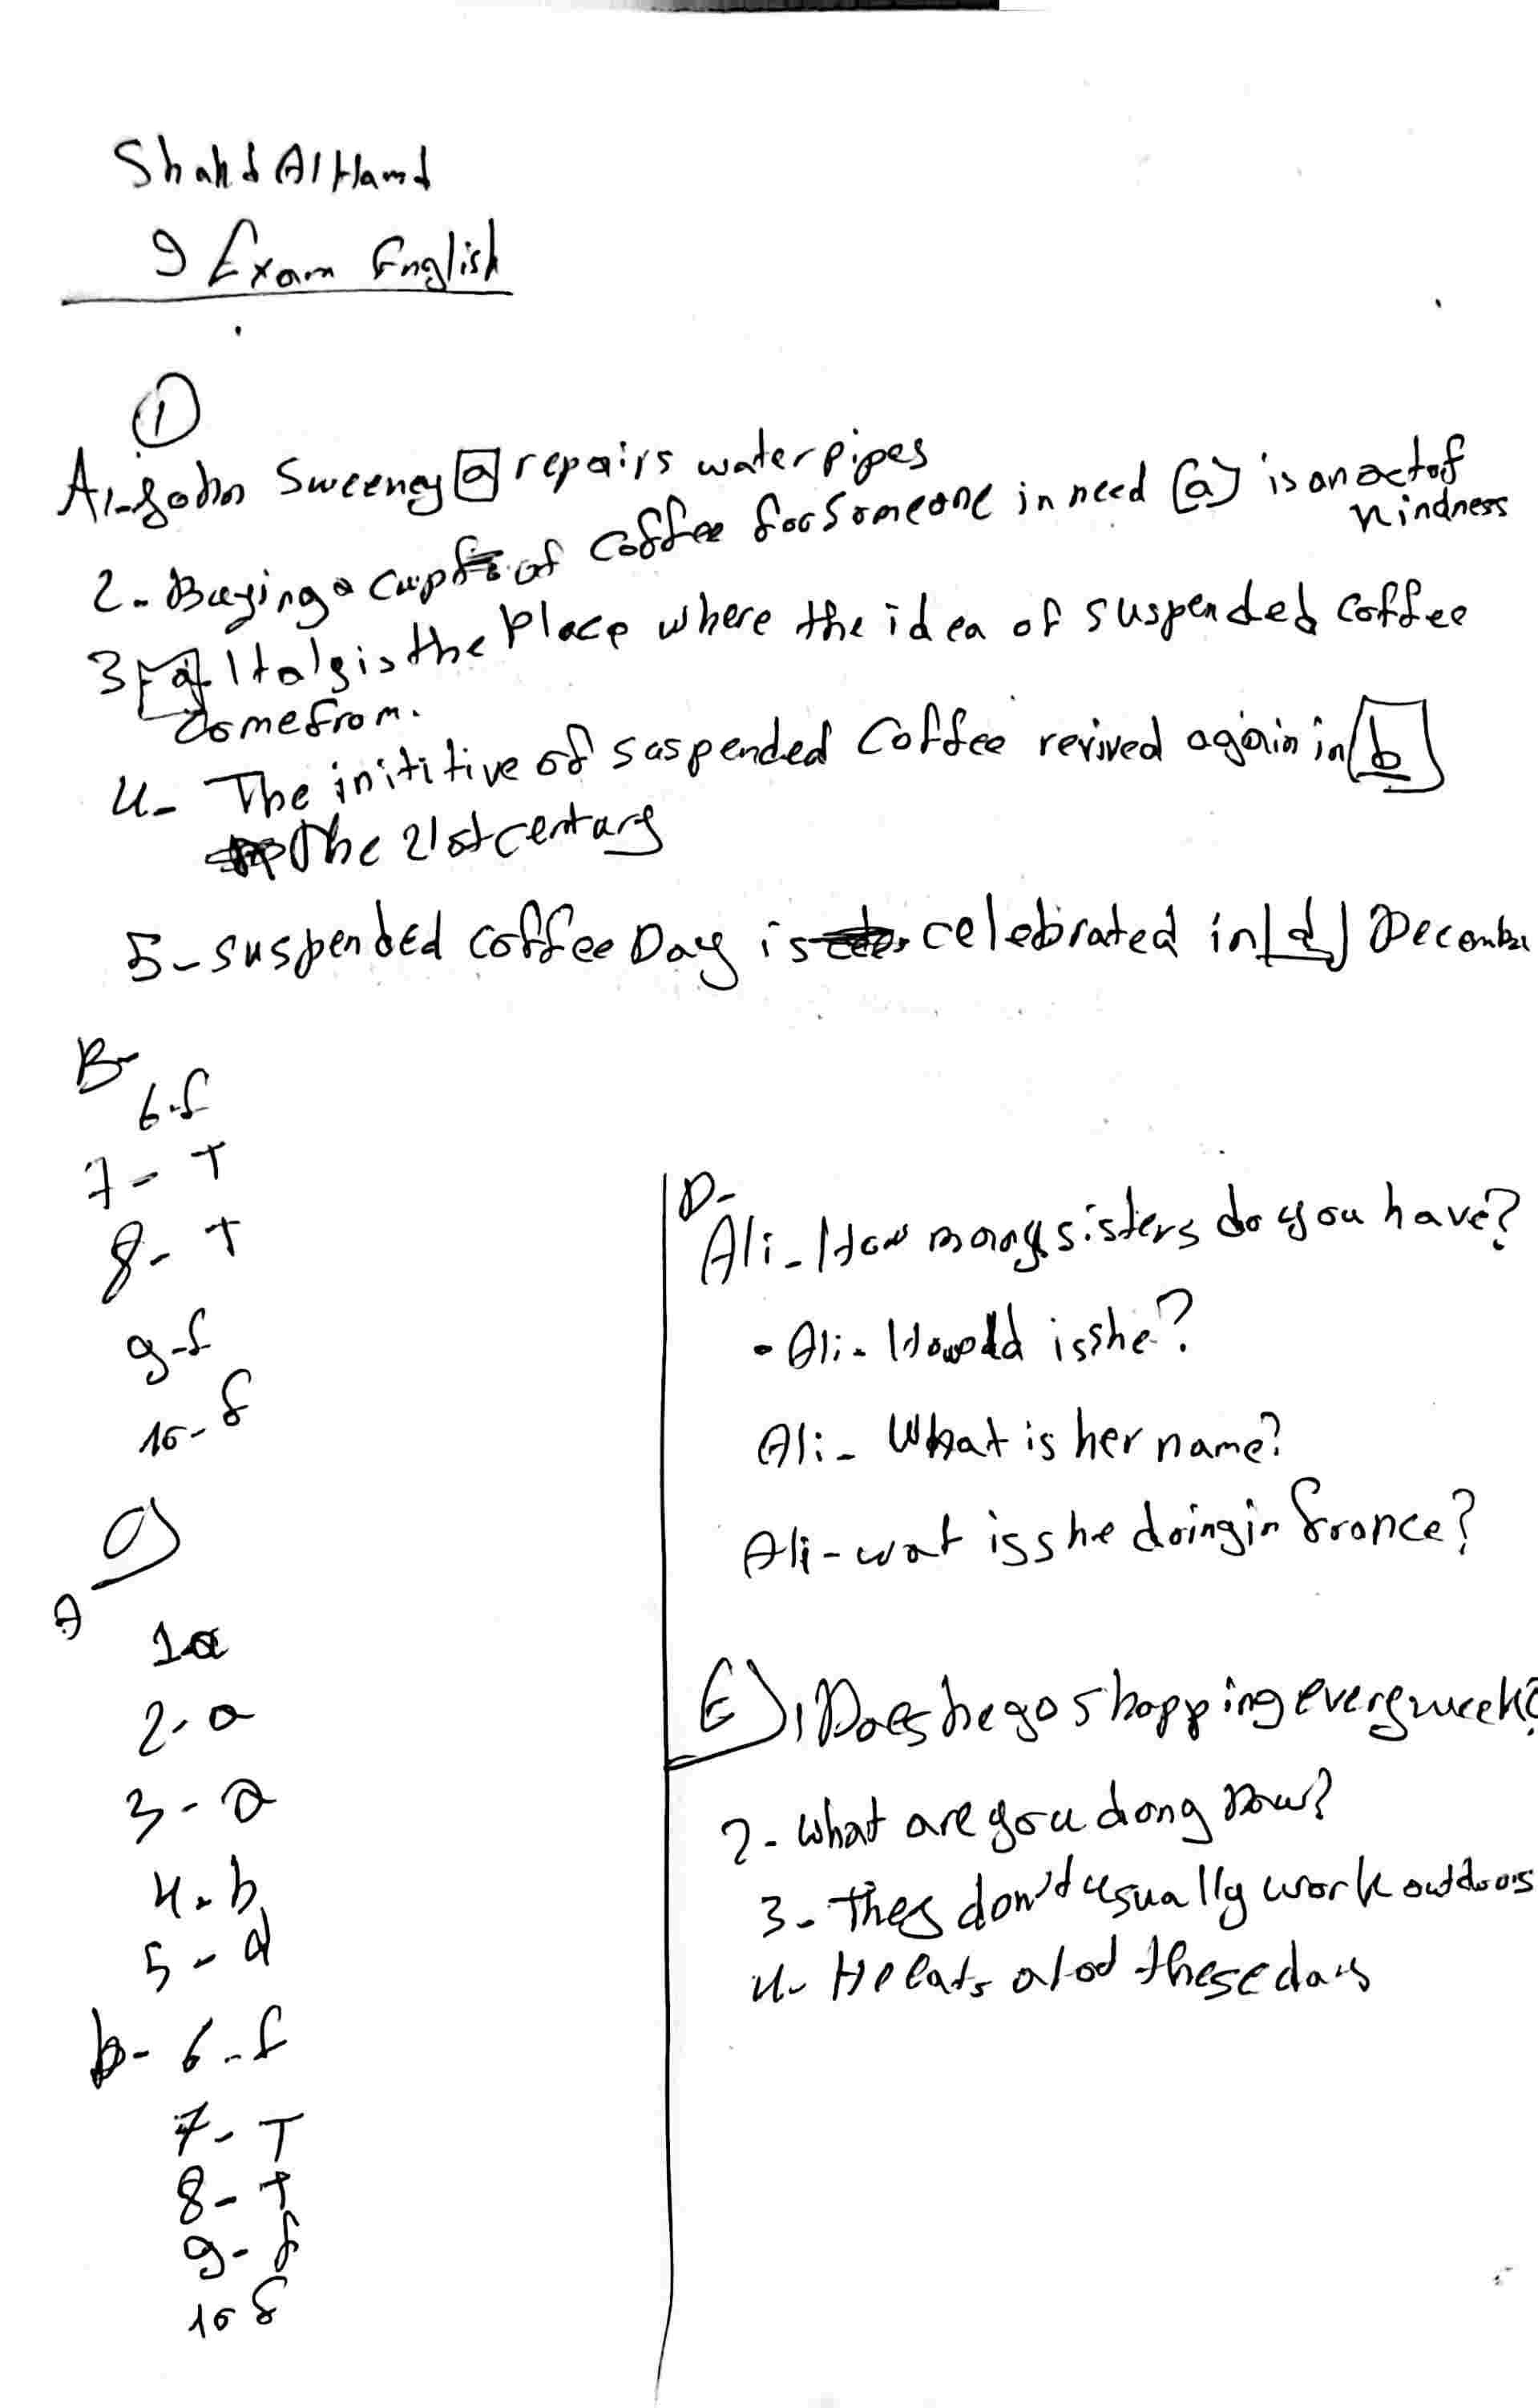 Shahd AlHamd
9 Exam English
①
A1-John Sweeney [a] repairs water pipes
2- Buying a cup of coffee for someone in need [a] is an act of
kindness
3- [a] Italy is the place where the idea of suspended coffee
come from.
4- The inititive of suspended coffee revived again in [b]
the 21st century
5- suspended coffee Day is celebrated in [d] December
B-
6-f
7- T
8- T
9-f
10-f
C)
A
1a
2-a
3-a
4-b
5-d
b- 6-f
7- T
8- T
9- f
10 f
D-
Ali- How many sisters do you have?
- Ali- How old is she?
Ali- What is her name?
Ali- wat is she doing in france?
E) 1 Does he go shopping every week?
2- What are you doing now?
3- they don't usually work outdoors
4- He eats a lot these days